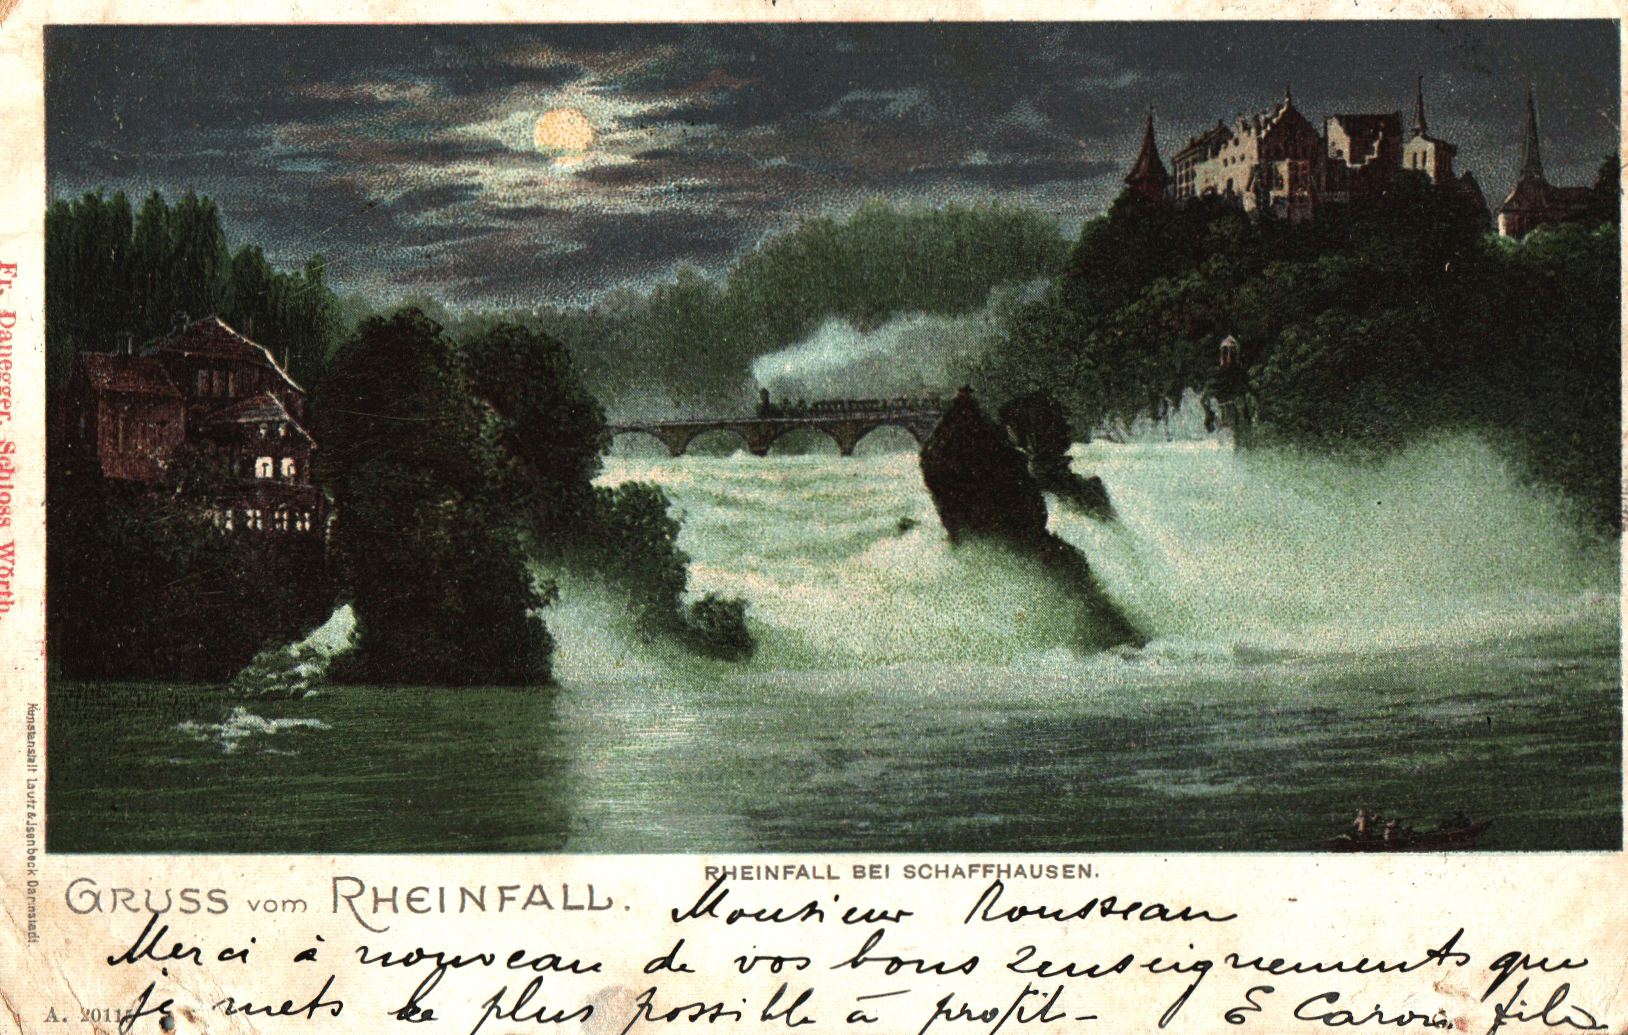 RHEINFALL BEI SCHAFFHAUSEN.
GRUSS vom RHEINFALL.
Monsieur Rousseau
Merci à nouveau de vos bons renseignements que
je mets le plus possible à profit - E Caron fils
A. 2011
Fr. Danegger, Schloss Wörth.
Kunstanstalt Lautz & Jsenbeck Darmstadt.